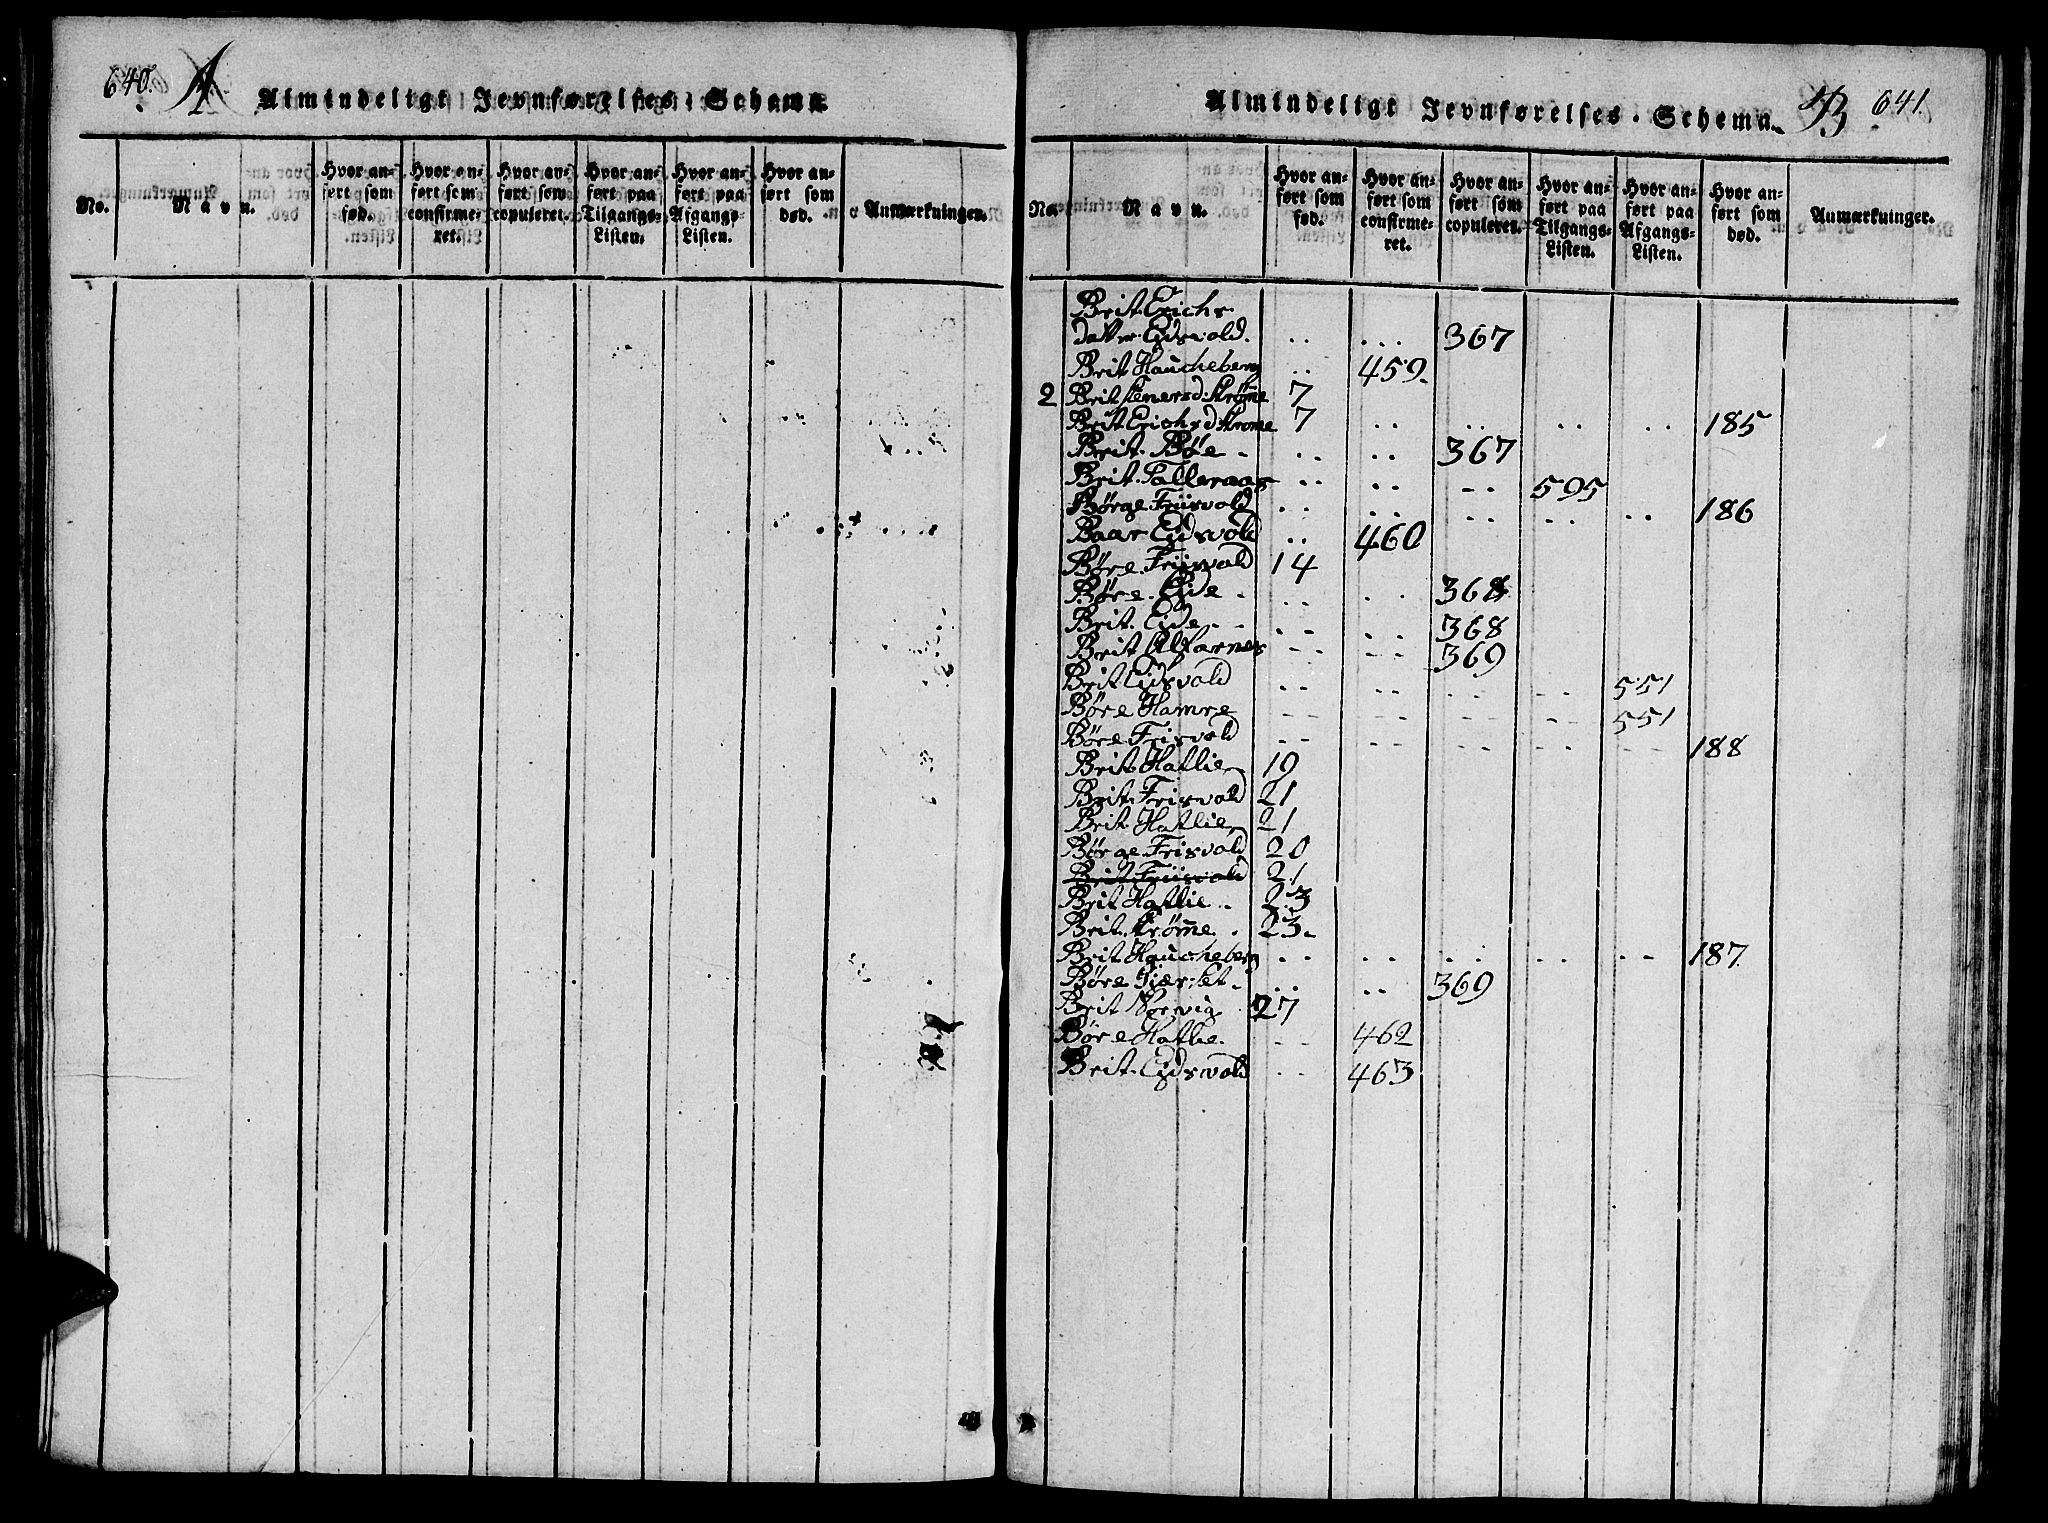 640. A Almindeligt Jevnførelses-Schema
No. Navn. Hvor anført som fød. Hvor anført som confirmeret. Hvor anført som copuleret. Hvor anført paa Tilgangs-Listen. Hvor anført paa Afgangs-Listen. Hvor anført som død. Anmærkninger.
Almindeligt Jevnførelses-Schema. B 641.
No. Navn. Hvor anført som fød. Hvor anført som confirmeret. Hvor anført som copuleret. Hvor anført paa Tilgangs-Listen. Hvor anført paa Afgangs-Listen. Hvor anført som død. Anmærkninger.
Brit Erichs
datter Eidsvold. .. ... 367
Brit Haucheberg .. 459.
2 Brit Strøme 7
Brit Erichsd Strøme 7 .. .. .. .. 185
Brit. Bøe - .. .. 367
Brit. Talleraas .. .. -- 595
Børge Friisvold .. .. .. .. .. 186
Baar Eidsvold .. 460
Børe. Friisvold 14
Børe. Eide - .. .. 368
Brit. Eide - - -- .. 368
Brit Alfarnes -- -- 369
Brit Eidsvold -- -- -- -- 551
Børe Hamre -- -- -- -- 551
Børe Frisvold -- -- -- -- -- 188
Brit Hatlie 19
Brit. Frisvold 21
Brit. Hatlie 21
Børge Frisvold 20
Brit Friisvold 21
Brit Hatlie - 23
Brit. Strøme. - 23.
Brit Haucheberg .. .. .. .. -- 187
Børe Gjerset - .. .. 369
Brit Norvig 27
Børe Hatlie. -- 462
Brit. Eidsvold -- 463